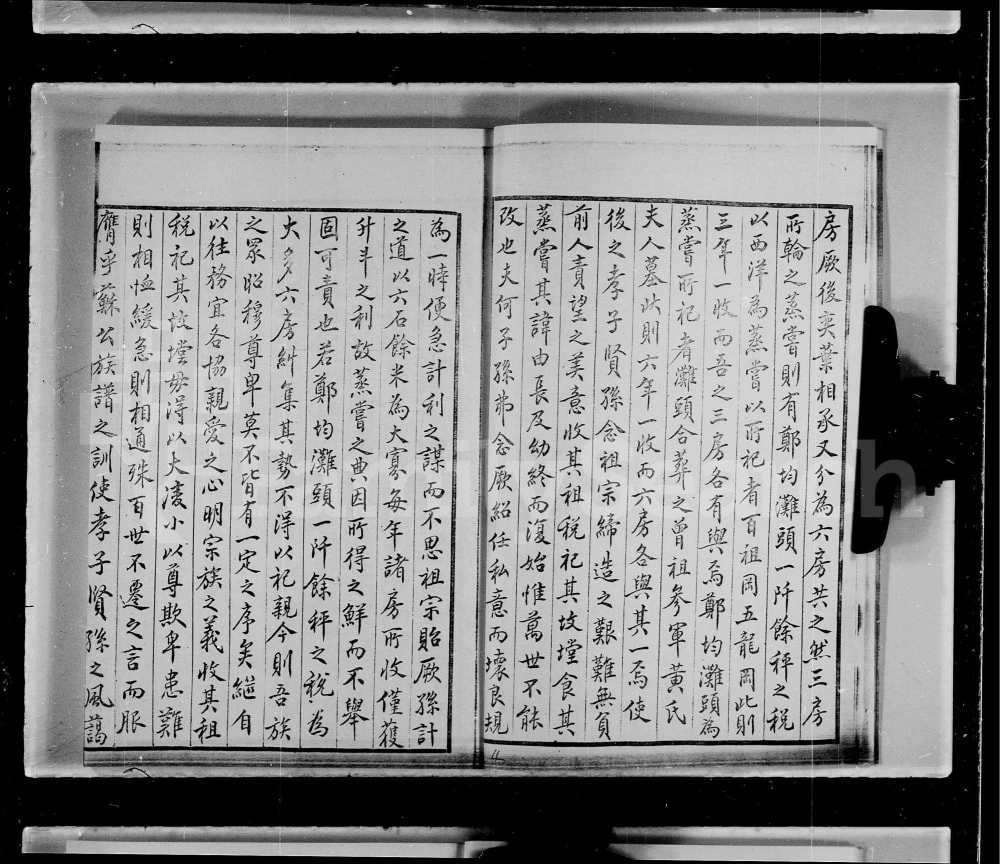 房厥後奕葉相承又分為六房共之然三房
所輪之蒸嘗則有鄭均灘頭一阡餘秤之稅
以西洋為蒸嘗以所祀者百祖岡五龍岡此則
三年一收而吾之三房各有與焉鄭均灘頭為
蒸嘗所祀者灘頭合葬之曾祖參軍黃氏
夫人墓此則六年一收而六房各與其一焉使
後之孝子賢孫念祖宗締造之艱難無負
前人責望之美意收其租稅祀其坟堂食其
蒸嘗其諱由長及幼終而復始惟萬世不能
改也夫何子孫弗念厥紹任私意而壞良規
為一時便急計利之謀而不思祖宗貽厥孫計
之道以六石餘米為大寡每年諸房所收僅獲
升斗之利故蒸嘗之典因所得之鮮而不舉
固可責也若鄭均灘頭一阡餘秤之稅為
大多六房糾集其勢不得以祀親今則吾族
之眾昭穆尊卑莫不皆有一定之序矣繼自
以往務宜各協親愛之心明宗族之義收其租
稅祀其坟堂毋得以大凌小以尊欺卑患難
則相恤緩急則相通殊百世不遷之言而服
膺乎蘇公族譜之訓使孝子賢孫之風藹